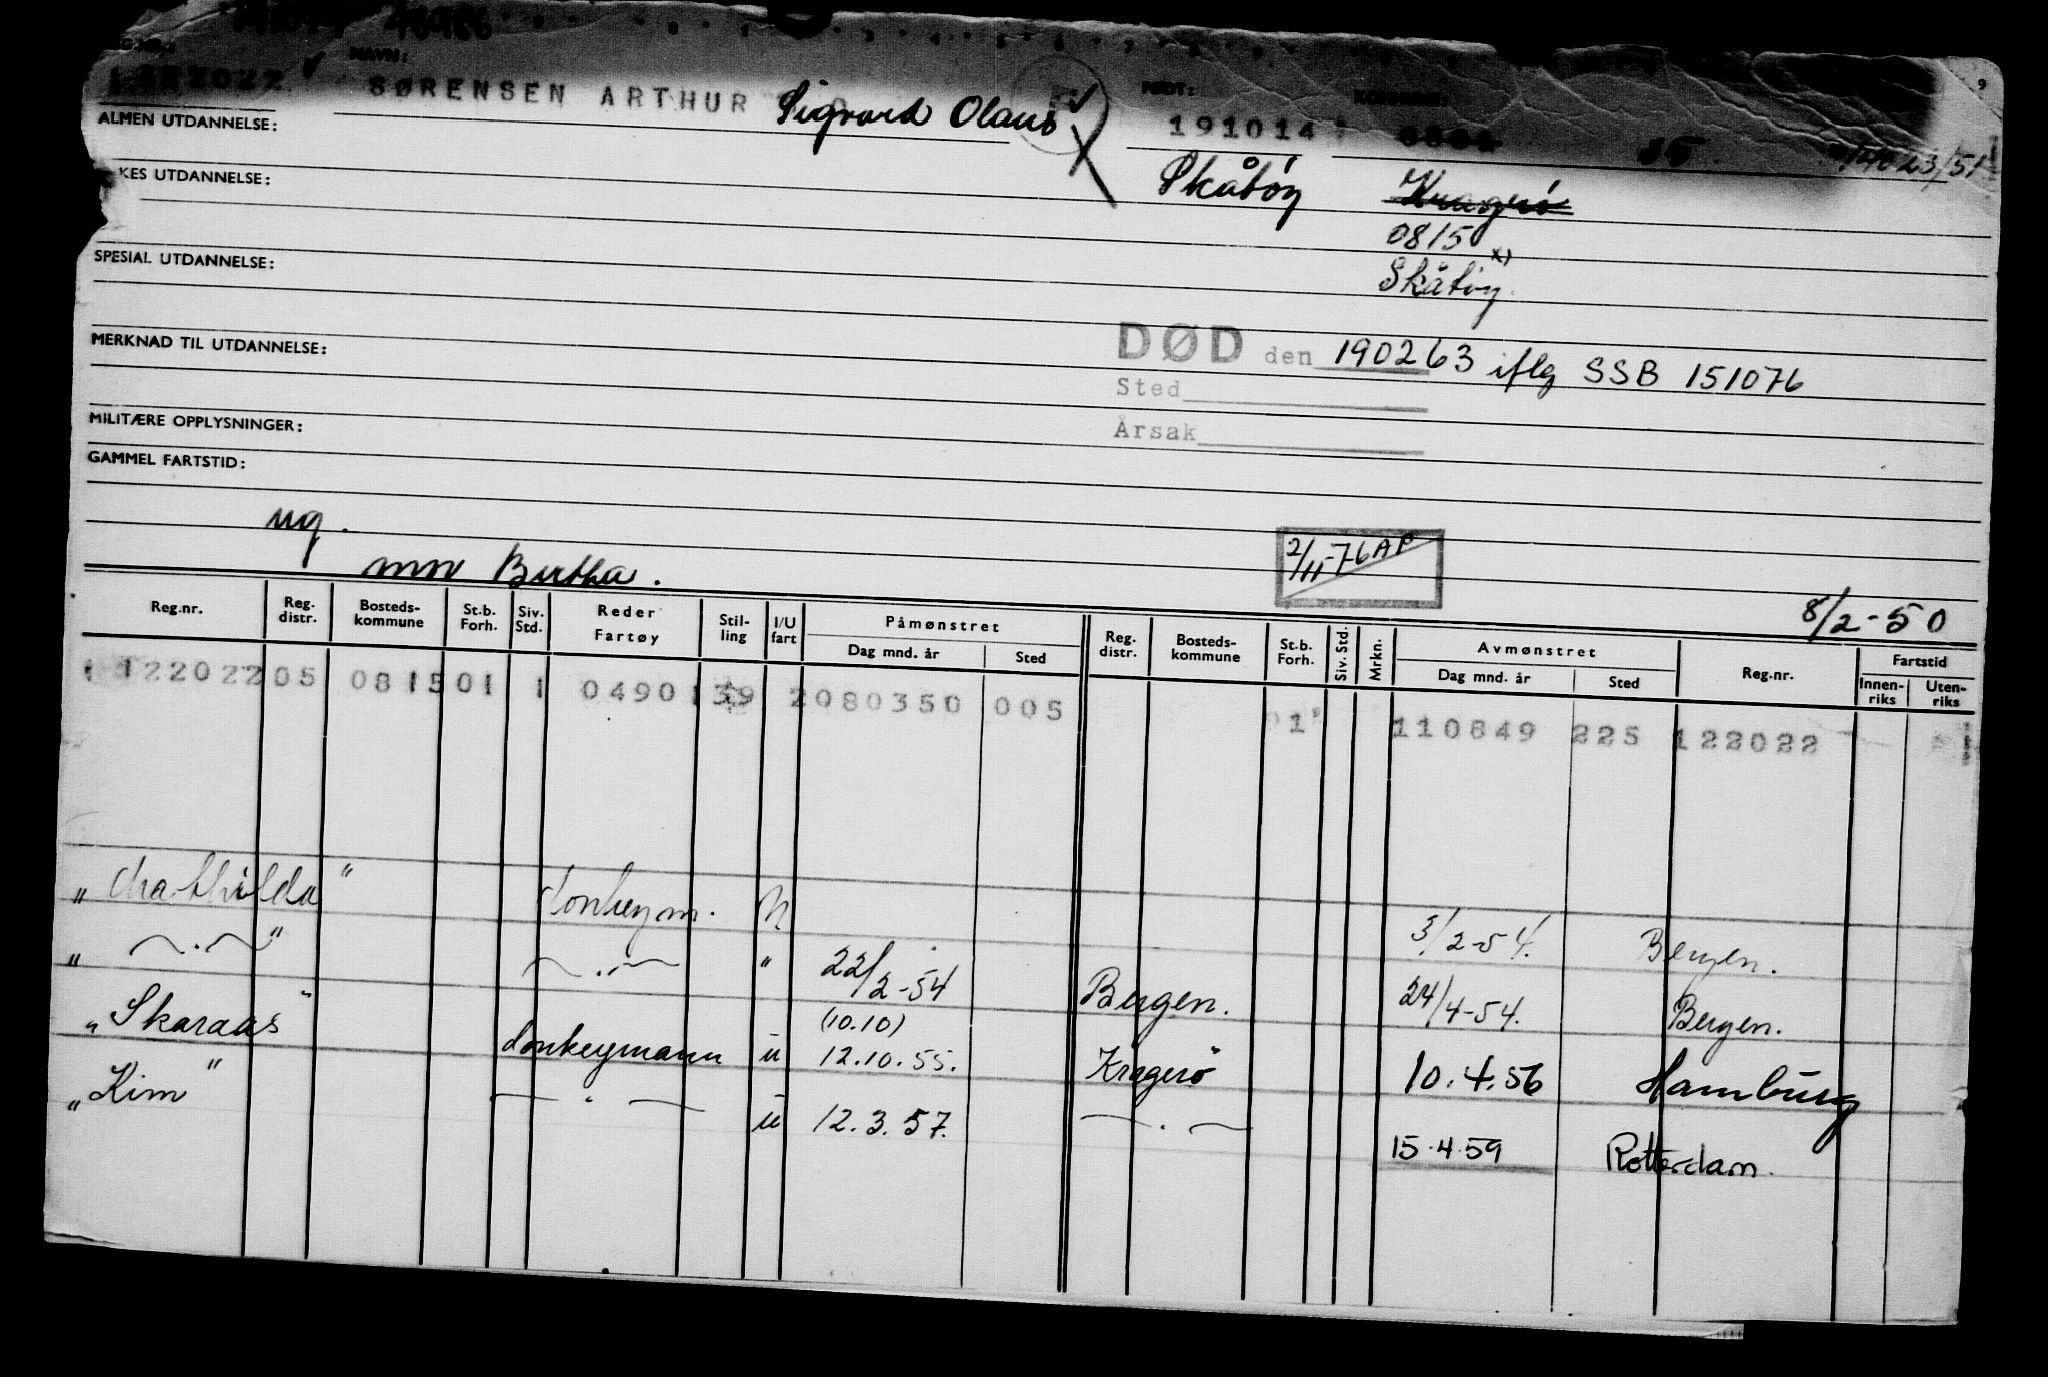 NAVN:
FØDT:
122022 SØRENSEN ARTHUR Sigvard Olaus 191014
ALMEN UTDANNELSE:
Skåtöy Kragerö
YRKES UTDANNELSE:
0815 x)
Skåtöy
SPESIAL UTDANNELSE:
MERKNAD TIL UTDANNELSE:
DØD den 190263 iflg SSB 151076
Sted
Årsak
MILITÆRE OPPLYSNINGER:
GAMMEL FARTSTID:
ug.
mor Bertha.
2/11-76 AP
8/2-50
Reg.nr. Reg. distr. Bosteds-kommune St.b. Forh. Siv. Std. Reder Fartøy Stil-ling I/U fart Påmønstret Dag mnd. år Sted Reg. distr. Bosteds-kommune St.b. Forh. Siv. Std. Mrkn. Avmønstret Dag mnd. år Sted Reg.nr. Fartstid Innen-riks Uten-riks
122022 05 0815 01 1 0490 139 2 080350 005 1 110849 225 122022
"Mathilda" donkeym. N 3/2-54. Bergen.
" — . — " — " — " 22/2-54 Bergen. 24/4-54. Bergen.
(10.10)
"Skaraas" donkeymann u 12.10.55. Kragerö 10.4.56 Hamburg
"Kim" — . — u 12.3.57. — . — 15.4.59 Rotterdam.